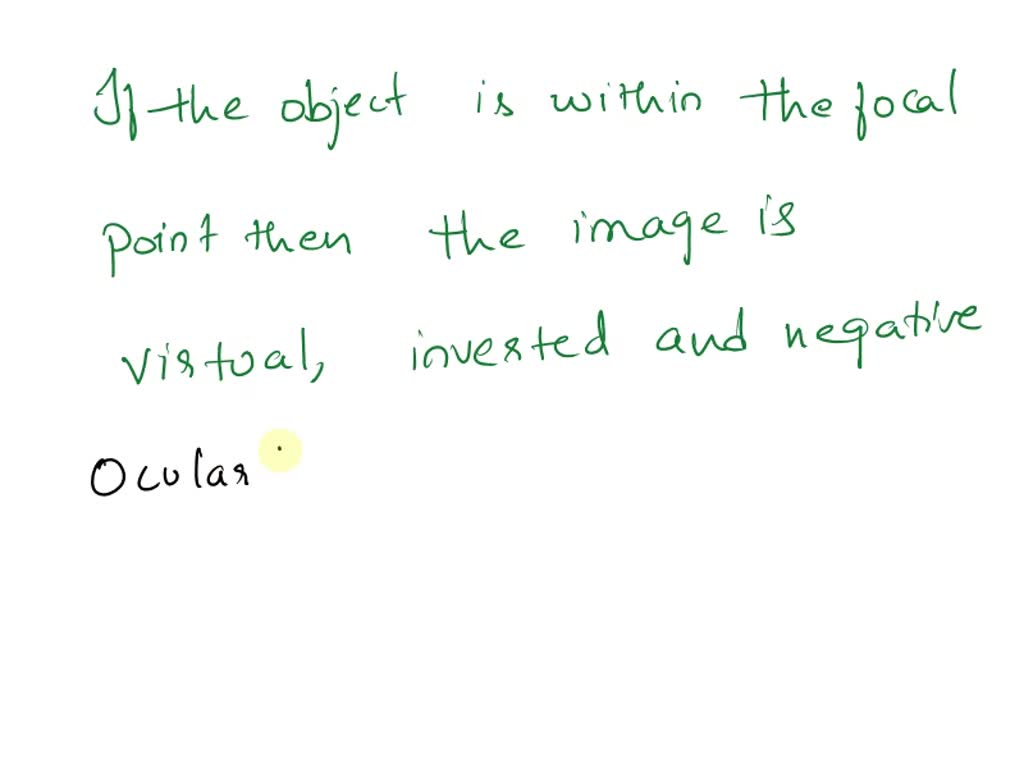 If the object is within the focal
point then the image is
virtual, inverted and negative
Ocular